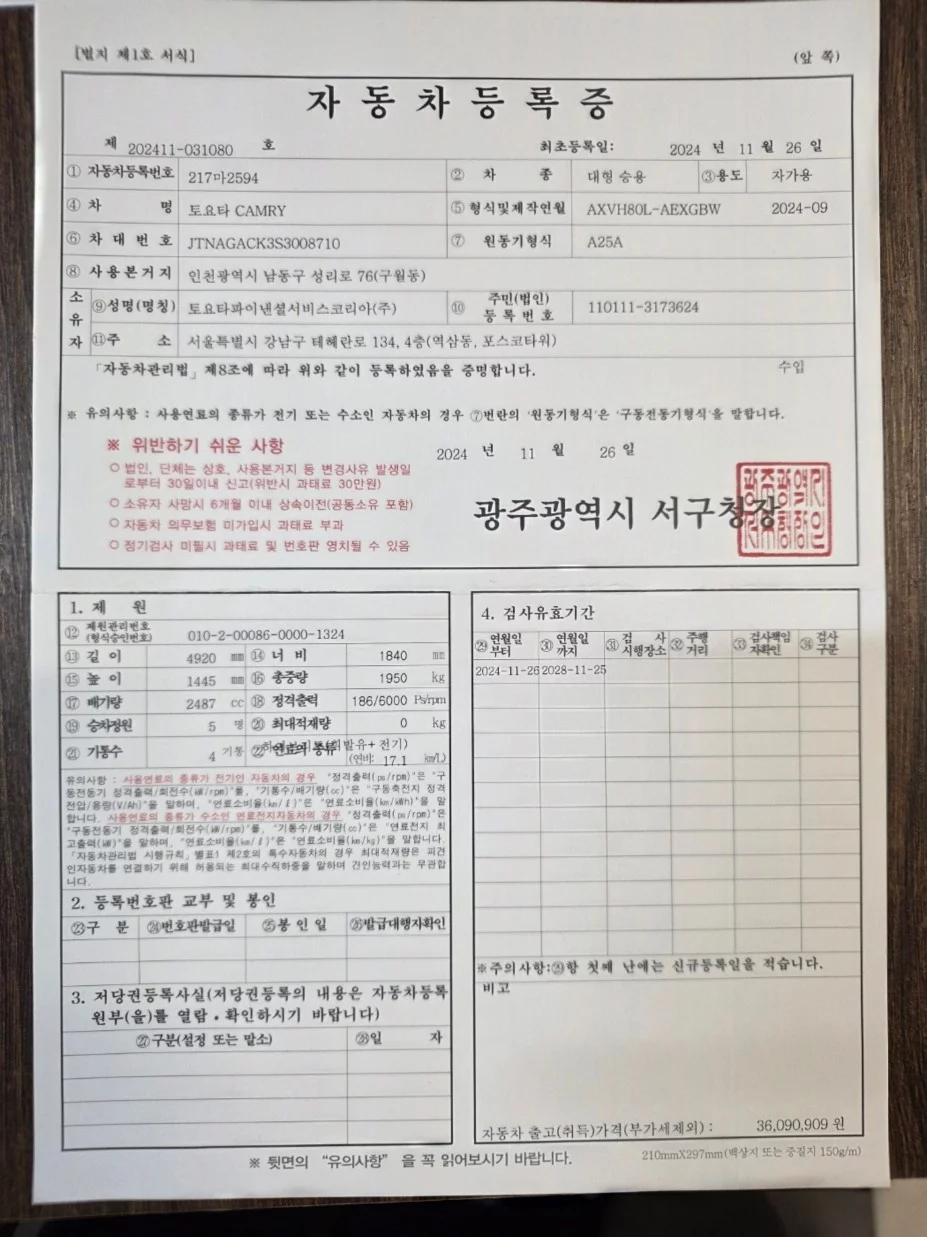 [별지 제1호 서식]
(앞 쪽)
자동차등록증
제 202411-031080 호
최초등록일: 2024 년 11 월 26 일
① 자동차등록번호 217마2594 ② 차 종 대형 승용 ③용도 자가용
④ 차 명 토요타 CAMRY ⑤ 형식및제작연월 AXVH80L-AEXGBW 2024-09
⑥ 차대번호 JTNAGACK3S3008710 ⑦ 원동기형식 A25A
⑧ 사용본거지 인천광역시 남동구 성리로 76(구월동)
소유자 ⑨성명(명칭) 토요타파이낸셜서비스코리아(주) ⑩ 주민(법인)등록번호 110111-3173624
⑪주 소 서울특별시 강남구 테헤란로 134, 4층(역삼동, 포스코타워)
「자동차관리법」 제8조에 따라 위와 같이 등록하였음을 증명합니다. 수입
※ 유의사항 : 사용연료의 종류가 전기 또는 수소인 자동차의 경우 ⑦번란의 '원동기형식'은 '구동전동기형식'을 말합니다.
※ 위반하기 쉬운 사항
2024 년 11 월 26 일
○ 법인, 단체는 상호, 사용본거지 등 변경사유 발생일
로부터 30일이내 신고(위반시 과태료 30만원)
○ 소유자 사망시 6개월 이내 상속이전(공동소유 포함)
○ 자동차 의무보험 미가입시 과태료 부과
○ 정기검사 미필시 과태료 및 번호판 영치될 수 있음
광주광역시 서구청장
1. 제 원
⑫ 제원관리번호(형식승인번호) 010-2-00086-0000-1324
⑬ 길 이 4920 mm ⑭ 너 비 1840 mm
⑮ 높 이 1445 mm ⑯ 총중량 1950 kg
⑰ 배기량 2487 cc ⑱ 정격출력 186/6000 Ps/rpm
⑲ 승차정원 5 명 ⑳ 최대적재량 0 kg
㉑ 기통수 4 기통 ㉒ 연료의 종류 (휘발유+ 전기)
(연비: 17.1 km/L)
유의사항 : 사용연료의 종류가 전기인 자동차의 경우 "정격출력(ps/rpm)"은 "구
동전동기 정격출력/회전수(kW/rpm)"를, "기통수/배기량(cc)"은 "구동축전지 정격
전압/용량(V/Ah)"을 말하며, "연료소비율(km/ℓ)"은 "연료소비율(km/kWh)"을 말
합니다. 사용연료의 종류가 수소인 연료전지자동차의 경우 "정격출력(ps/rpm)"은
"구동전동기 정격출력/회전수(kW/rpm)"를, "기통수/배기량(cc)"은 "연료전지 최
고출력(kW)"을 말하며, "연료소비율(km/ℓ)"은 "연료소비율(km/kg)"을 말합니다.
「자동차관리법 시행규칙」 별표1 제2호의 특수자동차의 경우 최대적재량은 피견
인자동차를 연결하기 위해 허용되는 최대수직하중을 말하며 견인능력과는 무관합
니다.
2. 등록번호판 교부 및 봉인
㉓구 분 ㉔번호판발급일 ㉕봉 인 일 ㉖발급대행자확인
3. 저당권등록사실(저당권등록의 내용은 자동차등록
원부(을)를 열람·확인하시기 바랍니다)
㉗구분(설정 또는 말소) ㉘일 자
4. 검사유효기간
㉙ 연월일부터 ㉚ 연월일까지 ㉛ 검 사 시행장소 ㉜ 주행거리 ㉝ 검사책임자확인 ㉞ 검사구분
2024-11-26 2028-11-25
※주의사항:㉙항 첫째 난에는 신규등록일을 적습니다.
비고
자동차 출고(취득)가격(부가세제외) : 36,090,909 원
※ 뒷면의 "유의사항" 을 꼭 읽어보시기 바랍니다.
210mmX297mm(백상지 또는 중질지 150g/m)